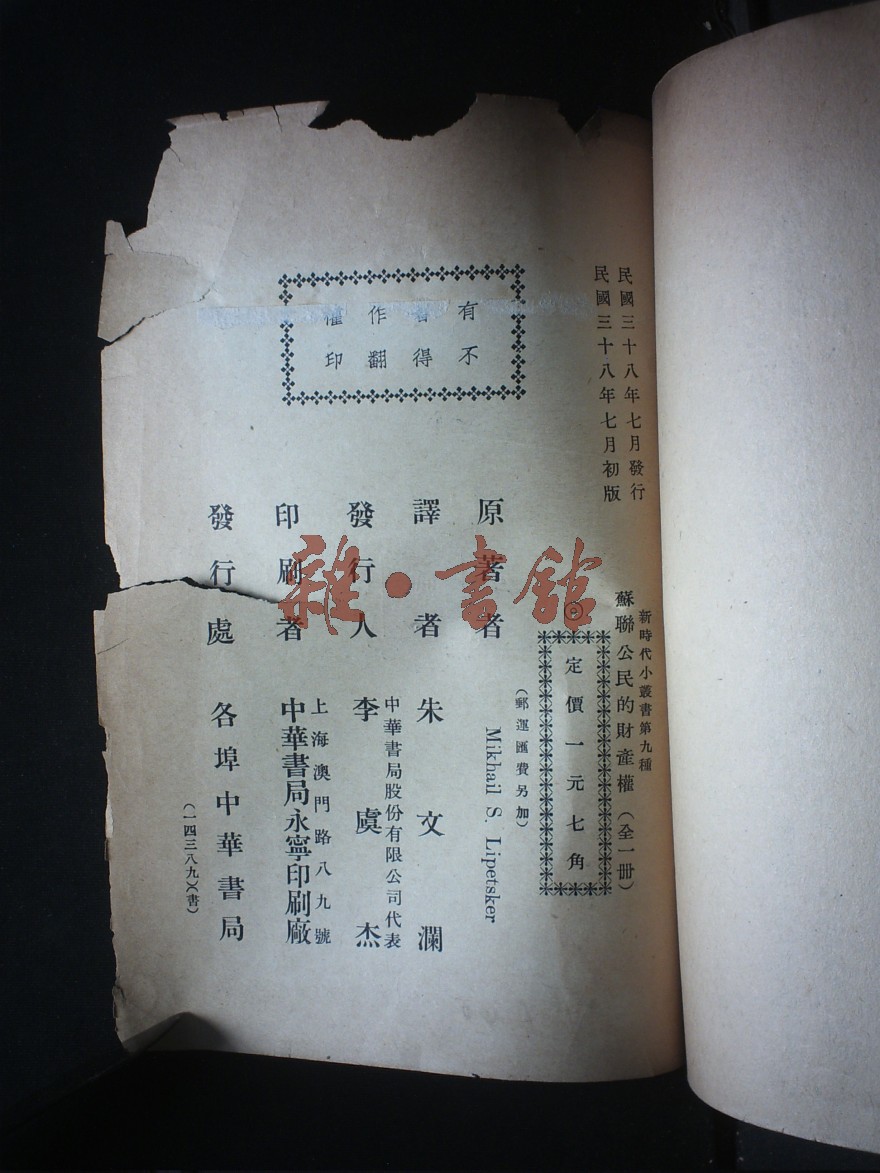 民國三十八年七月發行
民國三十八年七月初版
新時代小叢書第九種
蘇聯公民的財產權（全一冊）
定價一元七角
（郵運匯費另加）
原著者 Mikhail S. Lipetsker
譯者 朱文瀾
發行人 中華書局股份有限公司代表 李虞杰
印刷者 上海澳門路八九號 中華書局永寧印刷廠
發行處 各埠中華書局
（一四三八九）（書）
有著作權
不得翻印
雜·書館